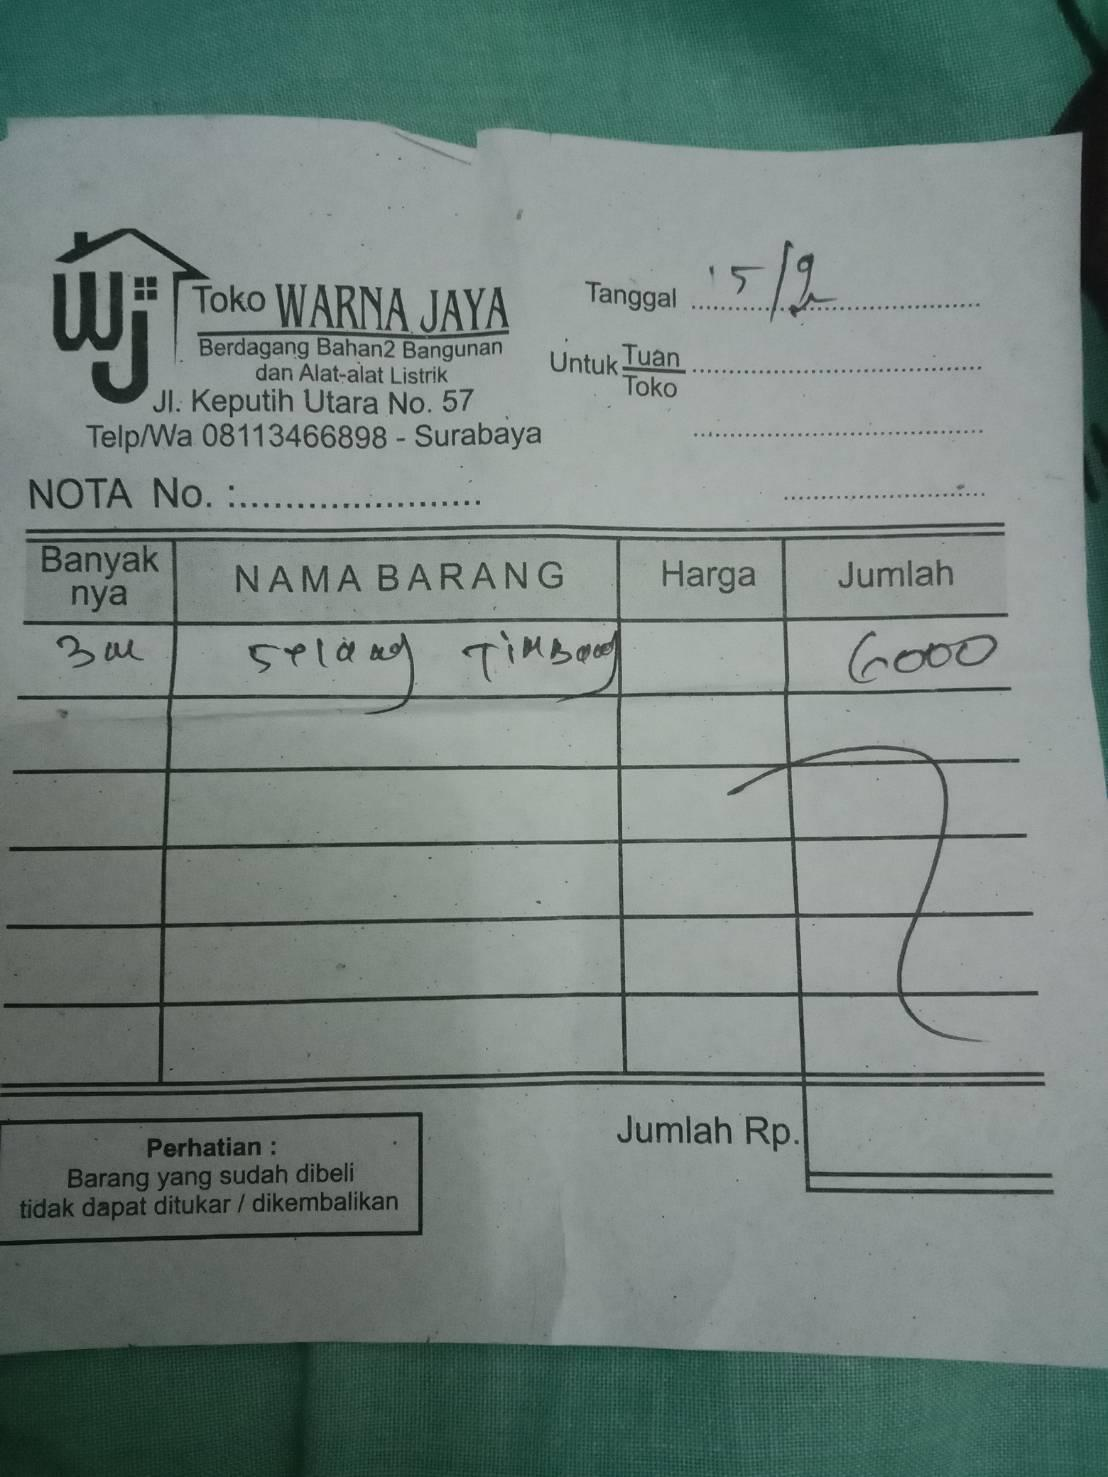 WJ
Toko WARNA JAYA
Berdagang Bahan2 Bangunan
dan Alat-alat Listrik
Jl. Keputih Utara No. 57
Telp/Wa 08113466898 - Surabaya
Tanggal 15/2
Untuk Tuan
Toko
NOTA No. :
Banyak nya NAMA BARANG Harga Jumlah
3 m Selang Timbang 6000
Jumlah Rp.
Perhatian :
Barang yang sudah dibeli
tidak dapat ditukar / dikembalikan